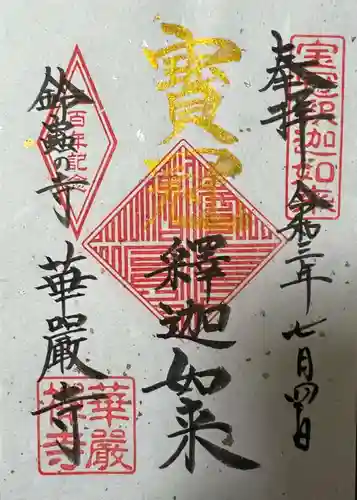 奉拝
令和三年七月四日
寳冠
釋迦如来
鈴蟲の寺
華嚴寺
寳冠釋迦如来
百年記念
華嚴禅寺